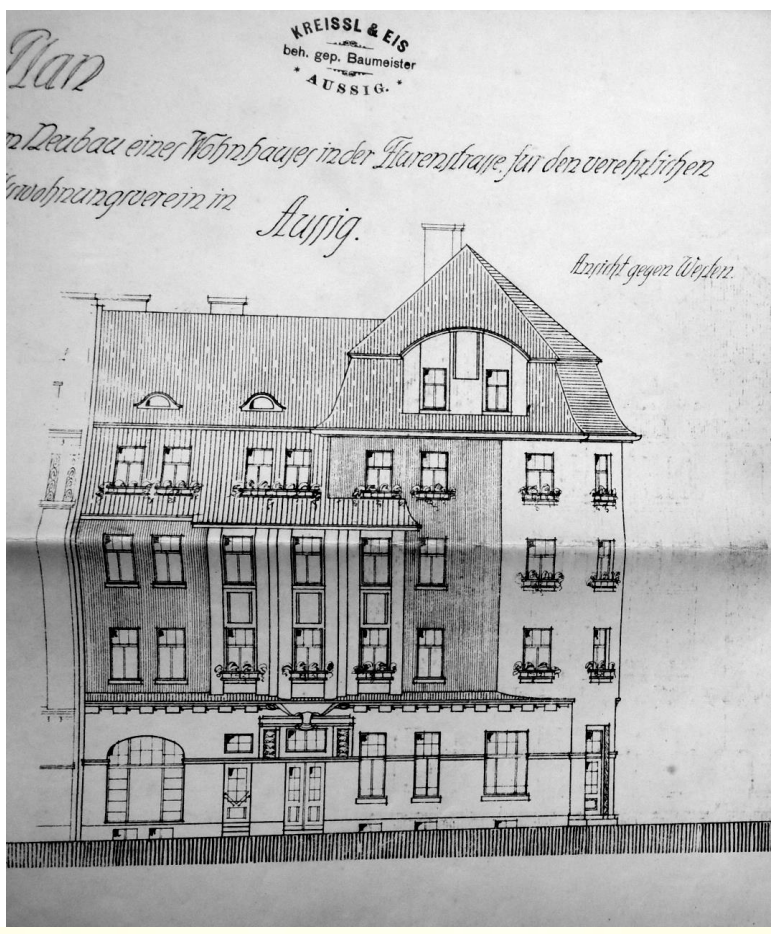 KREISSL & EIS
beh. gep. Baumeister
AUSSIG.
Plan
Neubau eines Wohnhauses in der Flurenstrasse, für den verehrlichen
wohnungsverein in Aussig.
Ansicht gegen Westen.